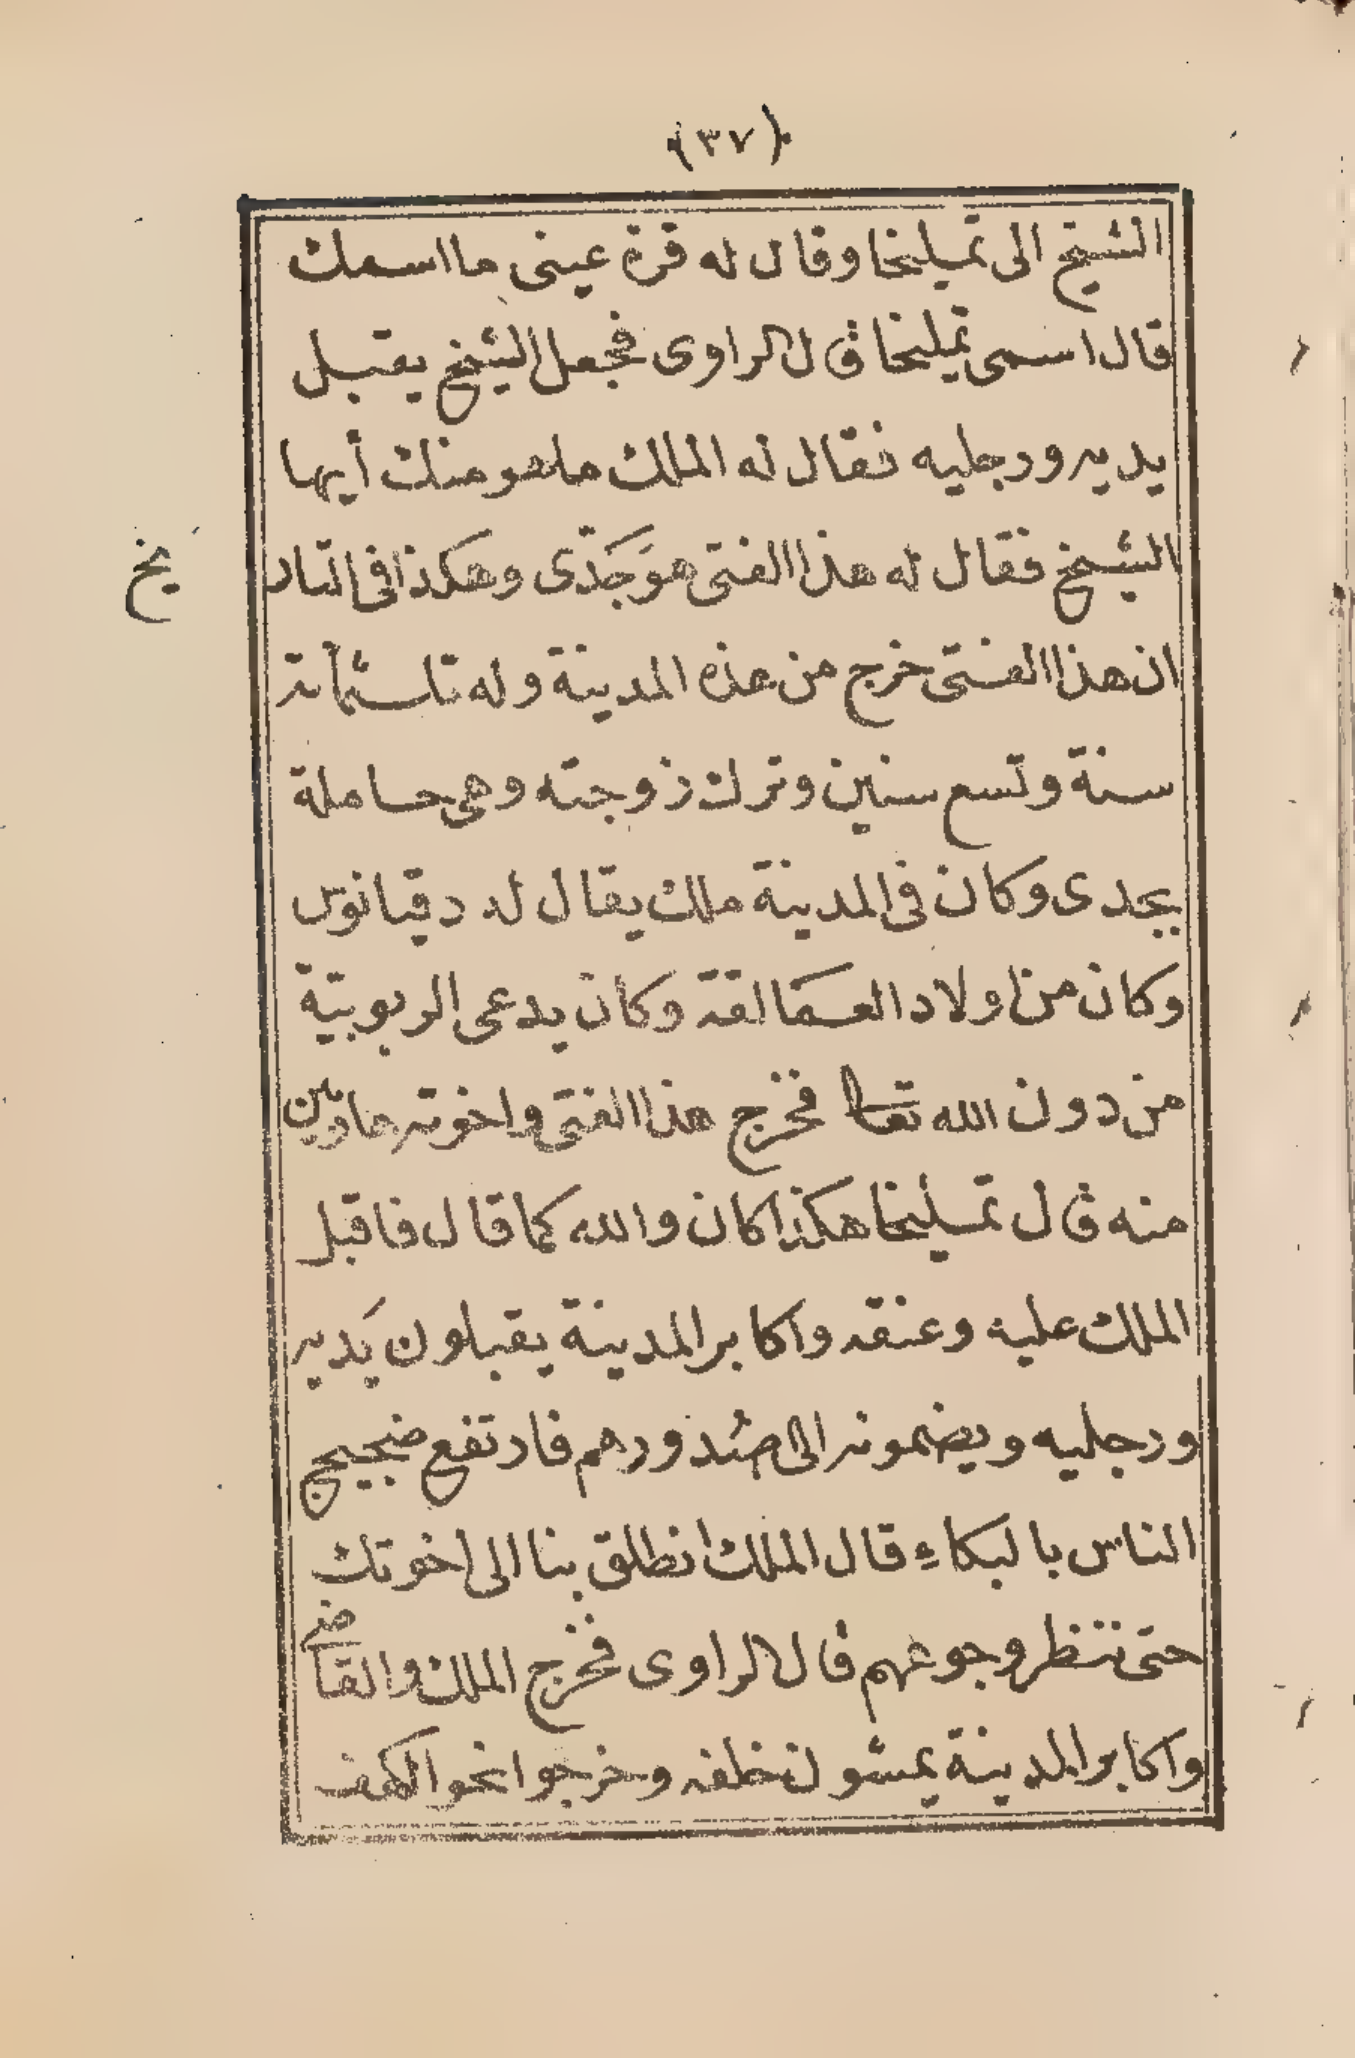 (٣٧)
الشيخ الى تمليخا وقال له قرة عينى ما اسمك
قال اسمى تمليخا قال الراوى فجعل الشيخ يقبل
يديه ورجليه فقال له الملك ماهو منك أيها
الشيخ فقال له هذا الفتى هو جدّى وهكذا فى التار
يخ
ان هذا الفتى خرج من هذه المدينة وله ثلثمأئة
سنة وتسع سنين وترك زوجته وهى حاملة
بجدى وكان فى المدينة ملك يقال له دقيانوس
وكان من اولاد العمالقة وكان يدعى الربوبية
من دون الله تعا فخرج هذا الفتى واخوته هاربين
منه قال تمليخا هكذا كان والله كما قال فاقبل
الملك عليه وعنقه واكابر المدينة يقبلون يديه
ورجليه ويضمونه الى صدورهم فارتفع ضجيج
الناس بالبكاء قال الملك انطلق بنا الى اخوتك
حتى ننظر وجوههم قال الراوى فخرج الملك والقاضى
واكابر المدينة يمشون خلفه وخرجوا نحو الكهف